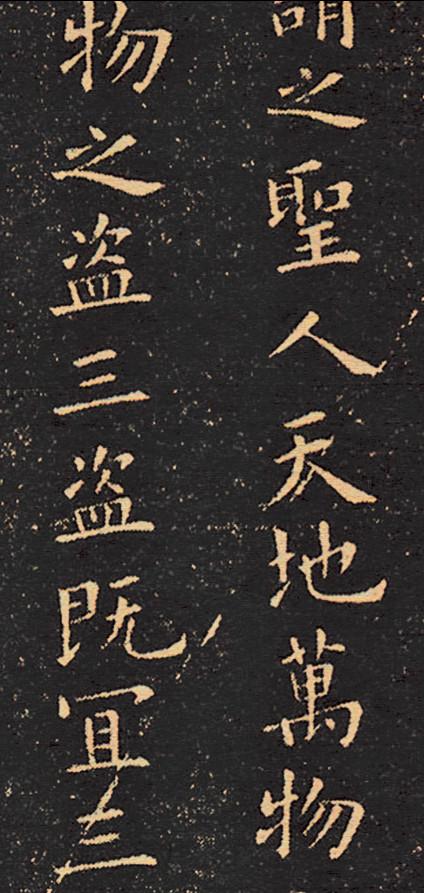 謂之聖人天地萬物
物之盗三盗既宜三